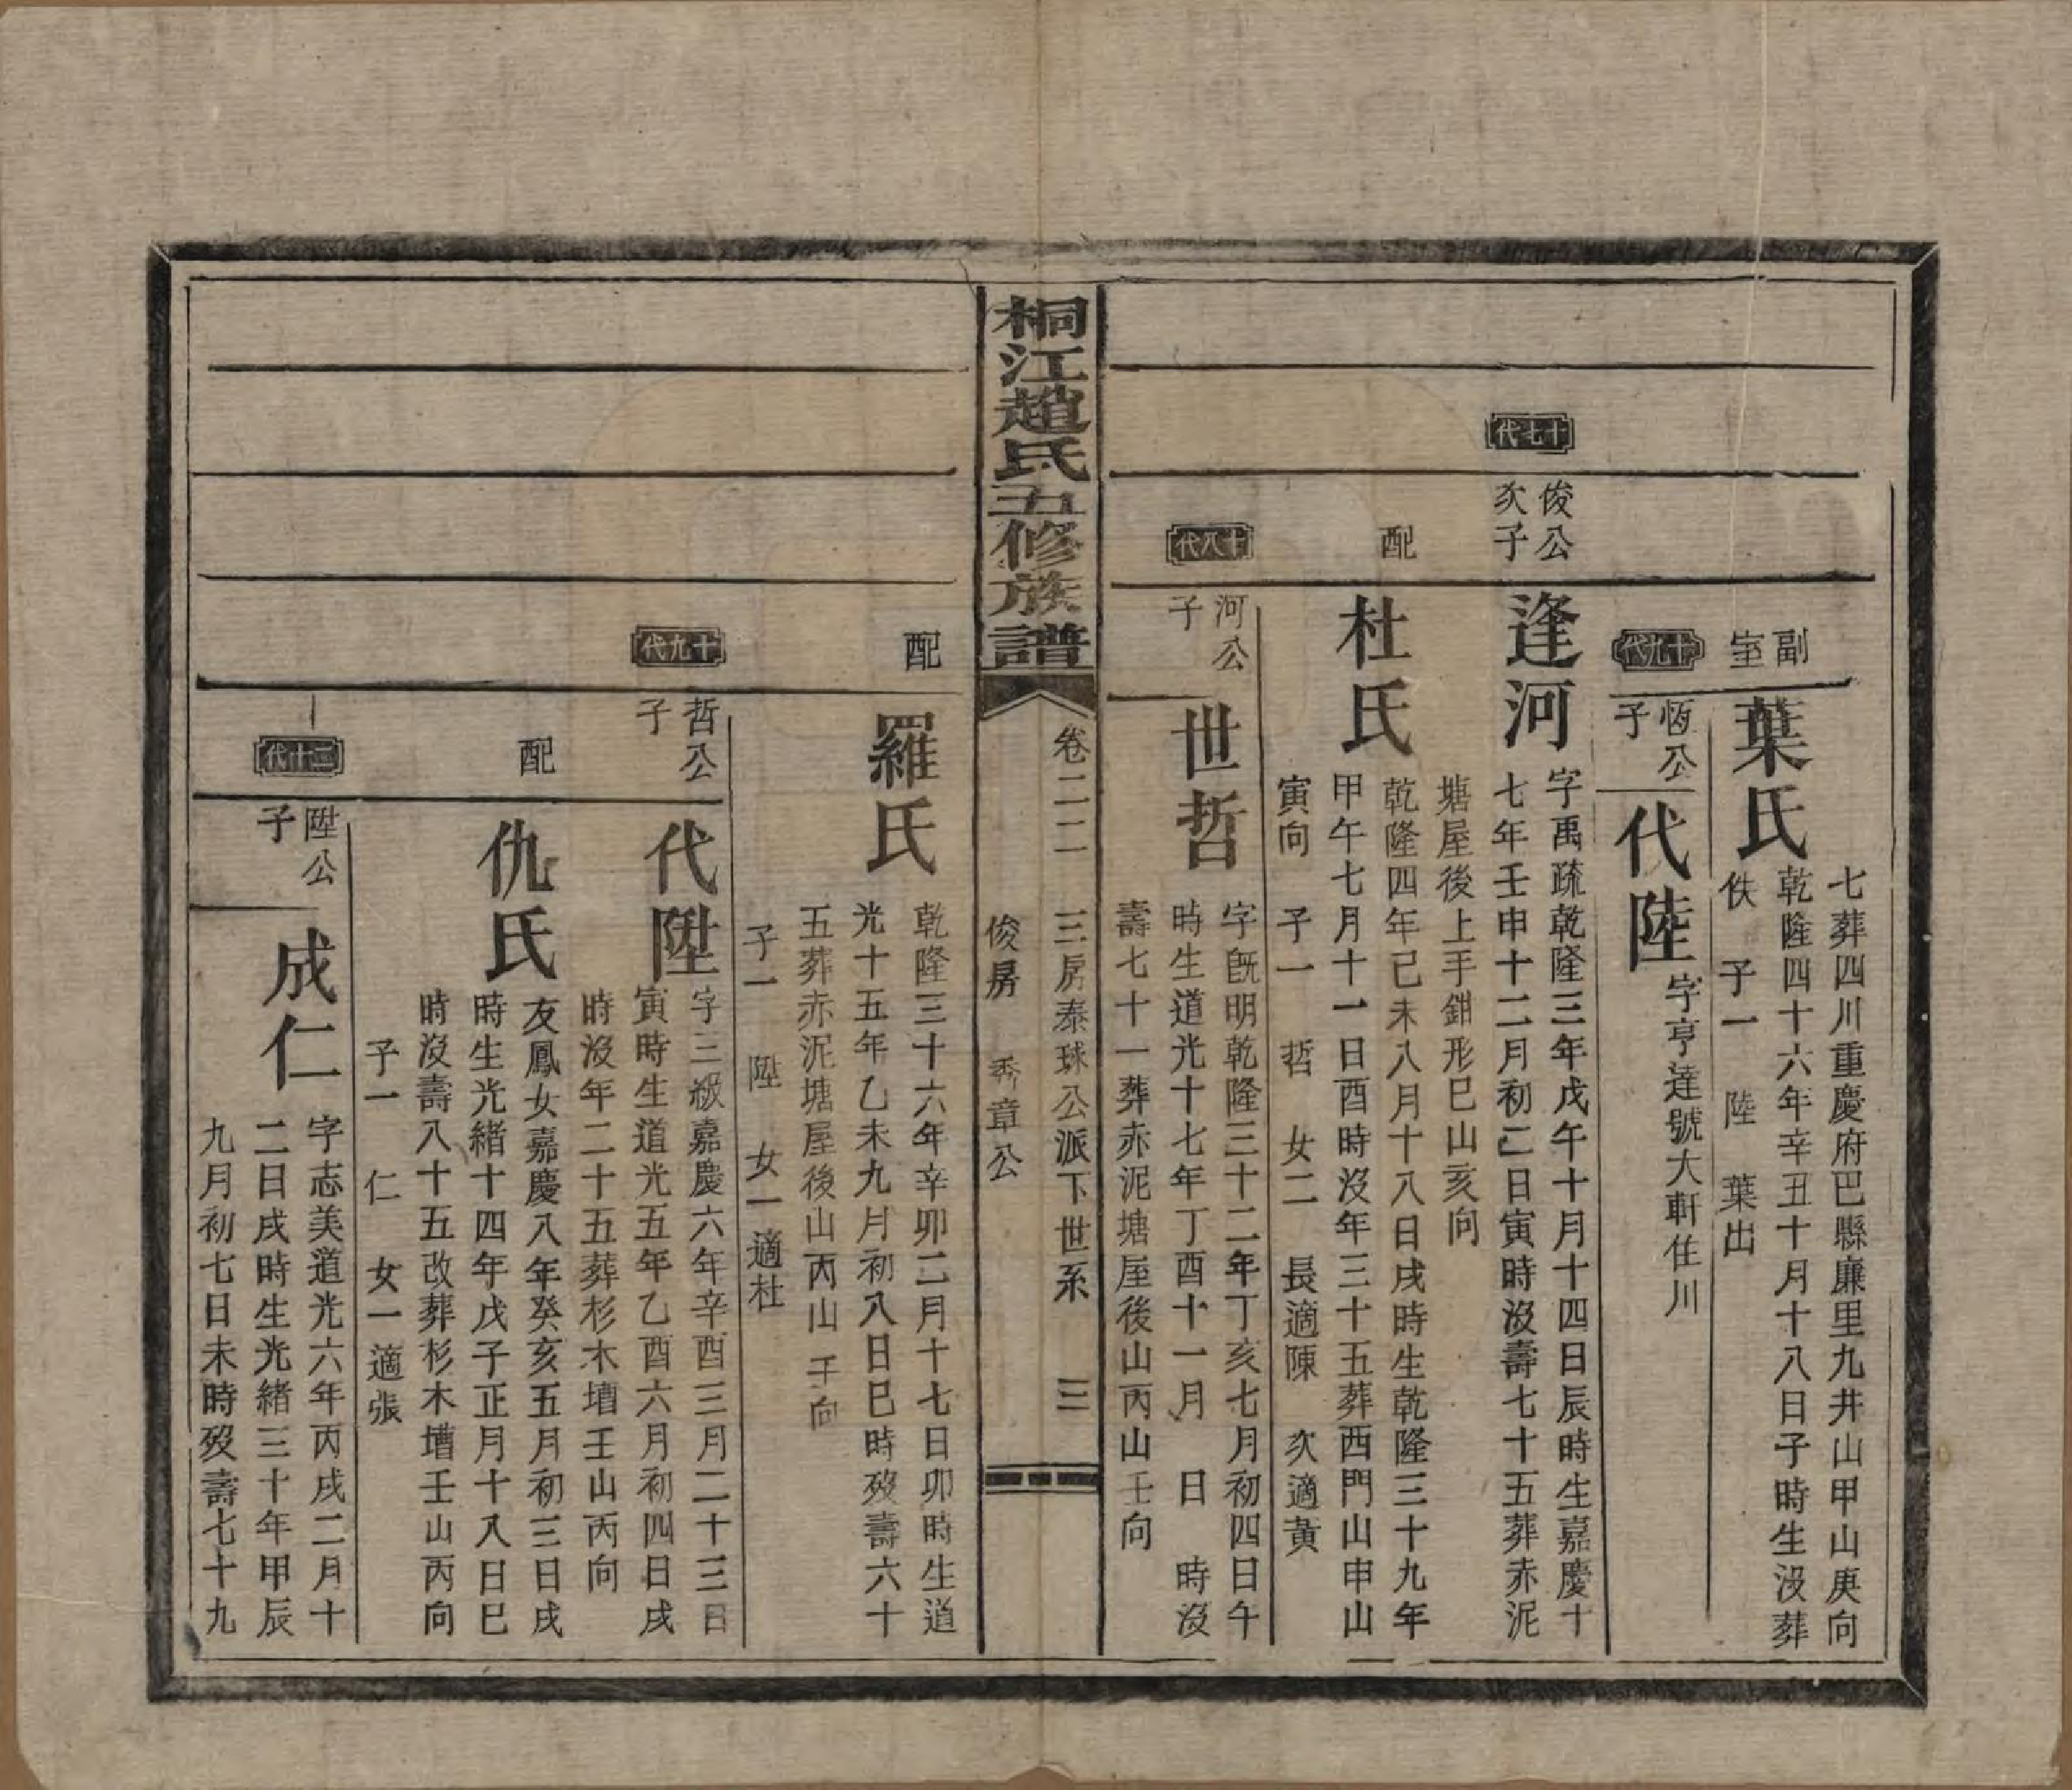 七葬四川重慶府巴縣廉里九井山甲山庚向
副室
葉氏
乾隆四十六年辛丑十月十八日子時生沒葬
佚 子一 陸 葉出
十九代
恆公子
代陸
字亨達號大軒住川
十七代
俊公次子
逢河
字禹疏乾隆三年戊午十月十四日辰時生嘉慶十
七年壬申十二月初二日寅時沒壽七十五葬赤泥
塘屋後上手鉗形巳山亥向
配
杜氏
乾隆四年己未八月十八日戌時生乾隆三十九年
甲午七月十一日酉時沒年三十五葬西門山申山
寅向 子一 哲 女二 長適陳 次適黃
十八代
河公子
世哲
字既明乾隆三十二年丁亥七月初四日午
時生道光十七年丁酉十一月 日 時沒
壽七十一葬赤泥塘屋後山丙山壬向
桐江趙氏五修族譜
卷二二 三房泰球公派下世系 三
俊房 秀章公
配
羅氏
乾隆三十六年辛卯二月十七日卯時生道
光十五年乙未九月初八日巳時歿壽六十
五葬赤泥塘屋後山丙山壬向
子一 陞 女一適杜
十九代
哲公子
代陞
字三級嘉慶六年辛酉三月二十三日
寅時生道光五年乙酉六月初四日戌
時沒年二十五葬杉木壋壬山丙向
配
仇氏
友鳳女嘉慶八年癸亥五月初三日戌
時生光緒十四年戊子正月十八日巳
時沒壽八十五改葬杉木壋壬山丙向
子一 仁 女一適張
二十代
陞公子
成仁
字志美道光六年丙戌二月十
二日戌時生光緒三十年甲辰
九月初七日未時歿壽七十九